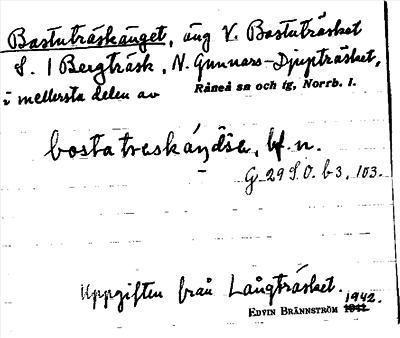 Bastuträskänget, äng V. Bastuträsket
S. l Bergträsk, N. Gunnars-Djupträsket,
i mellersta delen av Råneå sn och tg, Norrb. l.
bostatraskándsa, bf. n.
G 29 S.O. b 3. 103.
Uppgiften från Långträsket.
1942.
EDVIN BRÄNNSTRÖM 1941